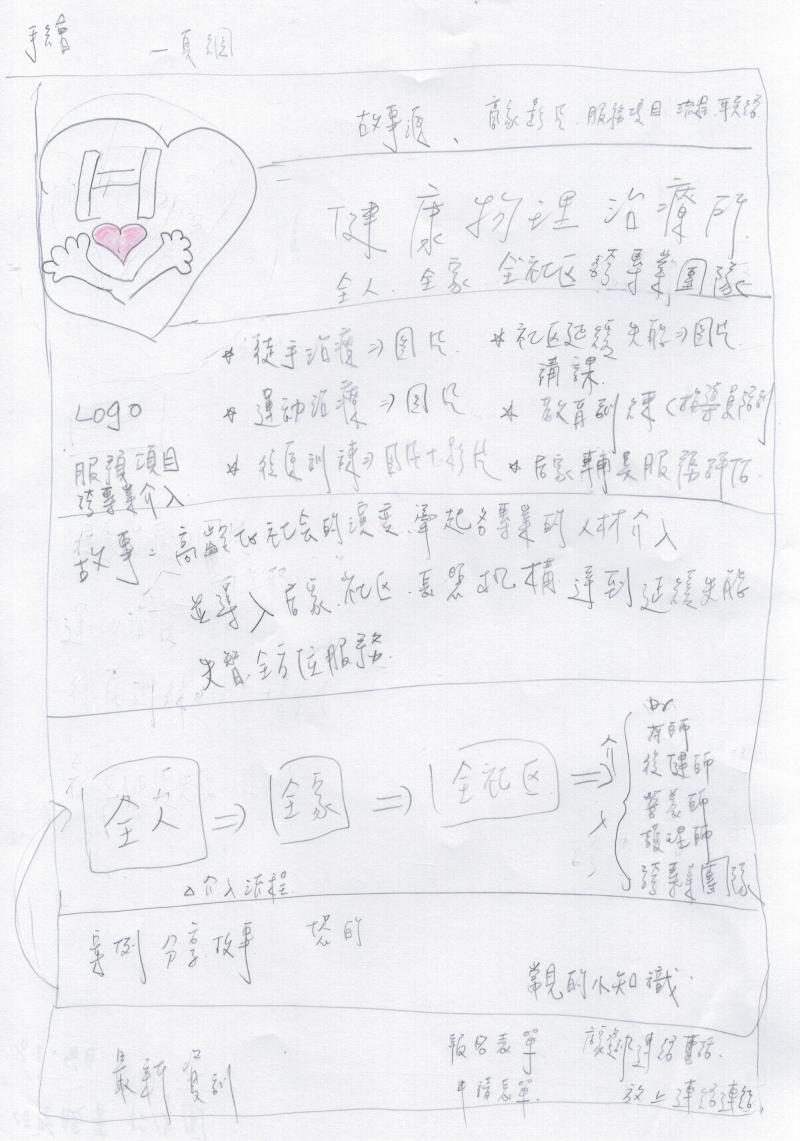 手繪
一頁網
故事源、 影片 服務項目 流程 聯絡
健康物理治療所
全人、全家、全社区 跨專業團隊
* 徒手治療⇒圖片
* 社区延緩失能⇒圖片
講課
LOGO
* 運動治療⇒圖片
* 教育訓練
服項項目
跨專業介入
* 復訓練⇒圖片+影片
* 居家輔具服務評估
故事: 高齡化社会的演變,牽起各專業的人材介入
並導入居家.社区.長照机構 達到延緩失能
失智全方位服務.
全人 ⇒ 全家 ⇒ 全社区 ⇒ 介入
Dr
藥師
復健師
營養師
護理師
跨專業團隊
△介入流程
案例分享故事
常見的小知識.
最新資訊
報名表單
連絡電話.
申請表單.
放上連絡連結